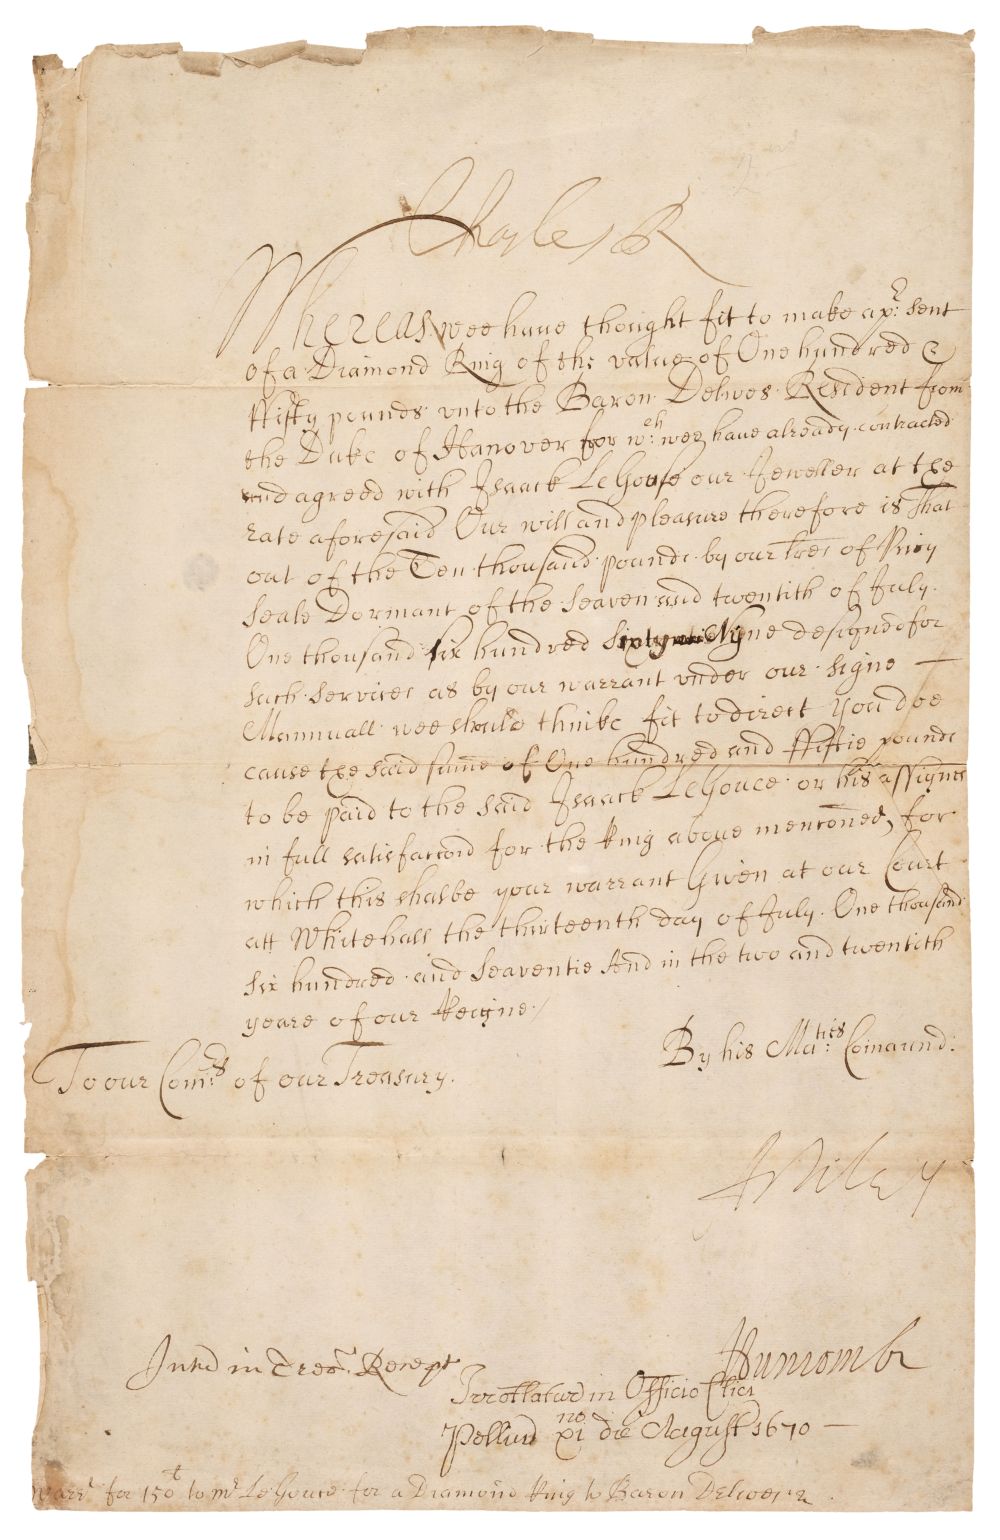 Charles R
Whereas wee have thought fit to make a pr: sent
of a Diamond Ring of the value of One hundred &
ffifty pounds vnto the Baron Delwes Resident from
the Duke of Hanover for wch: wee have already contracted
and agreed with Isaack LeGouse our Jeweller at the
rate aforesaid Our will and pleasure therefore is That
out of the Ten thousand pounds by our Lres of Privy
Seale Dormant of the Seaven and twentith of July
One thousand six hundred Sixty Nyne designed for
such services as by our warrant vnder our signe
Mannuall wee should thinke fit to direct You doe
cause the said sume of One hundred and ffiftie pounds
to be paid to the said Isaack LeGouce or his assignes
in full satisfaccon for the Ring above menconed, for
which this shalbe your warrant Given at our Court
att Whitehall the thirteenth day of July One thousand
six hundred and Seaventie And in the two and twentith
yeare of our Reigne /
By his Maties: Comaund:
To our Comrs of our Treasury.
Irrotlatur in Officio Clici
Pellium xi no die August 1670
Warrt for 150 t to mr LeGouce for a Diamond Ring to Baron